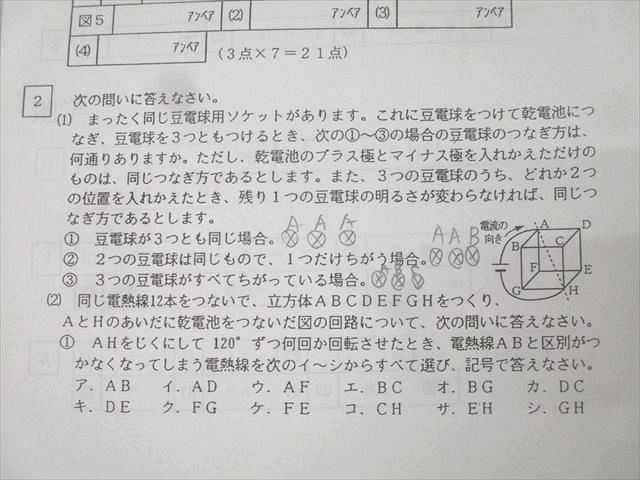 図5 ｱﾝﾍﾟｱ (2) ｱﾝﾍﾟｱ (3) ｱﾝﾍﾟｱ
(4) ｱﾝﾍﾟｱ (3点×7＝21点)
2 次の問いに答えなさい。
(1) まったく同じ豆電球用ソケットがあります。これに豆電球をつけて乾電池につ
なぎ、豆電球を3つともつけるとき、次の①～③の場合の豆電球のつなぎ方は、
何通りありますか。ただし、乾電池のプラス極とマイナス極を入れかえただけの
ものは、同じつなぎ方であるとします。また、3つの豆電球のうち、どれか2つ
の位置を入れかえたとき、残り1つの豆電球の明るさが変わらなければ、同じつ
なぎ方であるとします。
① 豆電球が3つとも同じ場合。 A A A
② 2つの豆電球は同じもので、1つだけちがう場合。 A A B
③ 3つの豆電球がすべてちがっている場合。 A B C
電流の
向き
A D
B C
F E
G H
(2) 同じ電熱線12本をつないで、立方体ABCDEFGHをつくり、
AとHのあいだに乾電池をつないだ図の回路について、次の問いに答えなさい。
① AHをじくにして 120°ずつ何回か回転させたとき、電熱線ABと区別がつ
かなくなってしまう電熱線を次のイ～シからすべて選び、記号で答えなさい。
ア．AB イ．AD ウ．AF エ．BC オ．BG カ．DC
キ．DE ク．FG ケ．FE コ．CH サ．EH シ．GH